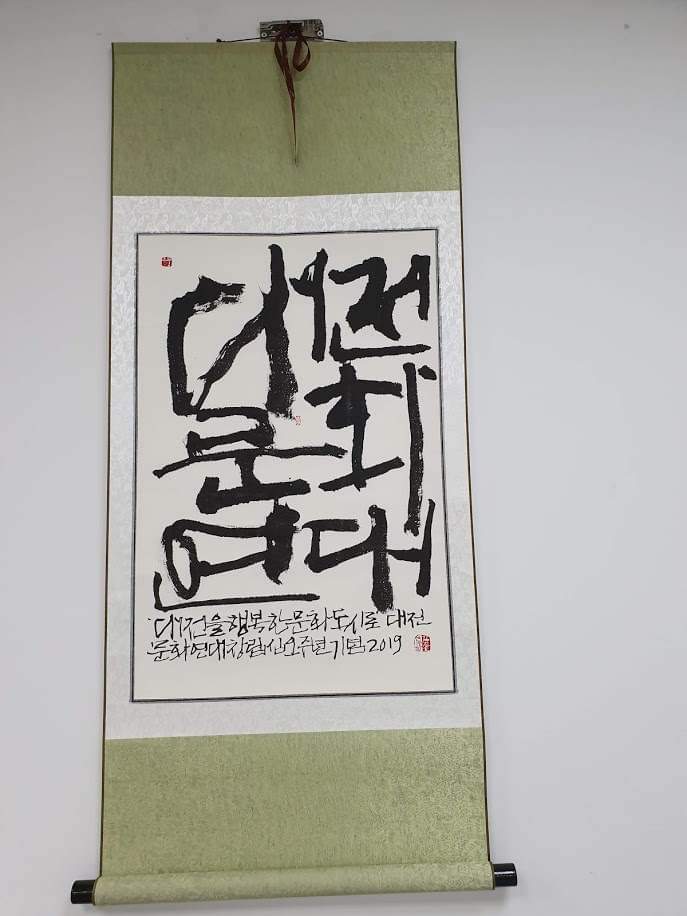 대전
문화
연대
대전을행복한문화도시로 대전
문화연대창립십오주년기념2019